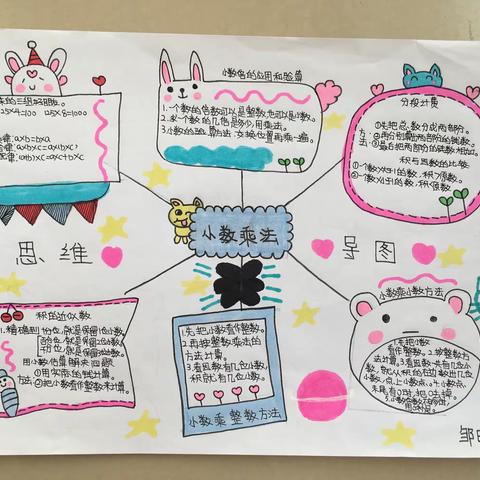 乘的三组好朋友。
25×4=100 125×8=1000
律:a×b=b×a
律:a×b×c=a×(b×c)
律:(a+b)×c=a×c+b×c
小数倍的应用和验算
1.一个数的倍数可以是整数,也可以是小数。
2.求一个数的几倍是多少,用乘法。
3.小数的验算方法:交换位置再乘一遍。
分段计费
①先把总数分成两部分。
方法:②再分别算出两部分的钱数。
③最后把两部分的钱数相加。
积与因数的比较
①一个数×大于1的数,积>原数。
②一个数×小于1的数,积<原数。
小数乘法
思维
导图
积的近似数
1.精确到十分位,就是保留一位小数
百分位,就是保留两位小数
千分位,就是保留三位小数
用小数估算解决问题
方法:
②把小数看作整数来计算。
1.先把小数看作整数。
2.再按整数乘法的
方法计算。
3.看因数有几位小数,
积就有几位小数。
小数乘整数方法
小数乘小数方法
1.先把小数
看作整数。2.按整数方
法计算。3.看因数一共有几位小
数,就从积的右边数出几位
小数,点上小数点。4.小数点
末尾有0时,把0去掉。
邹